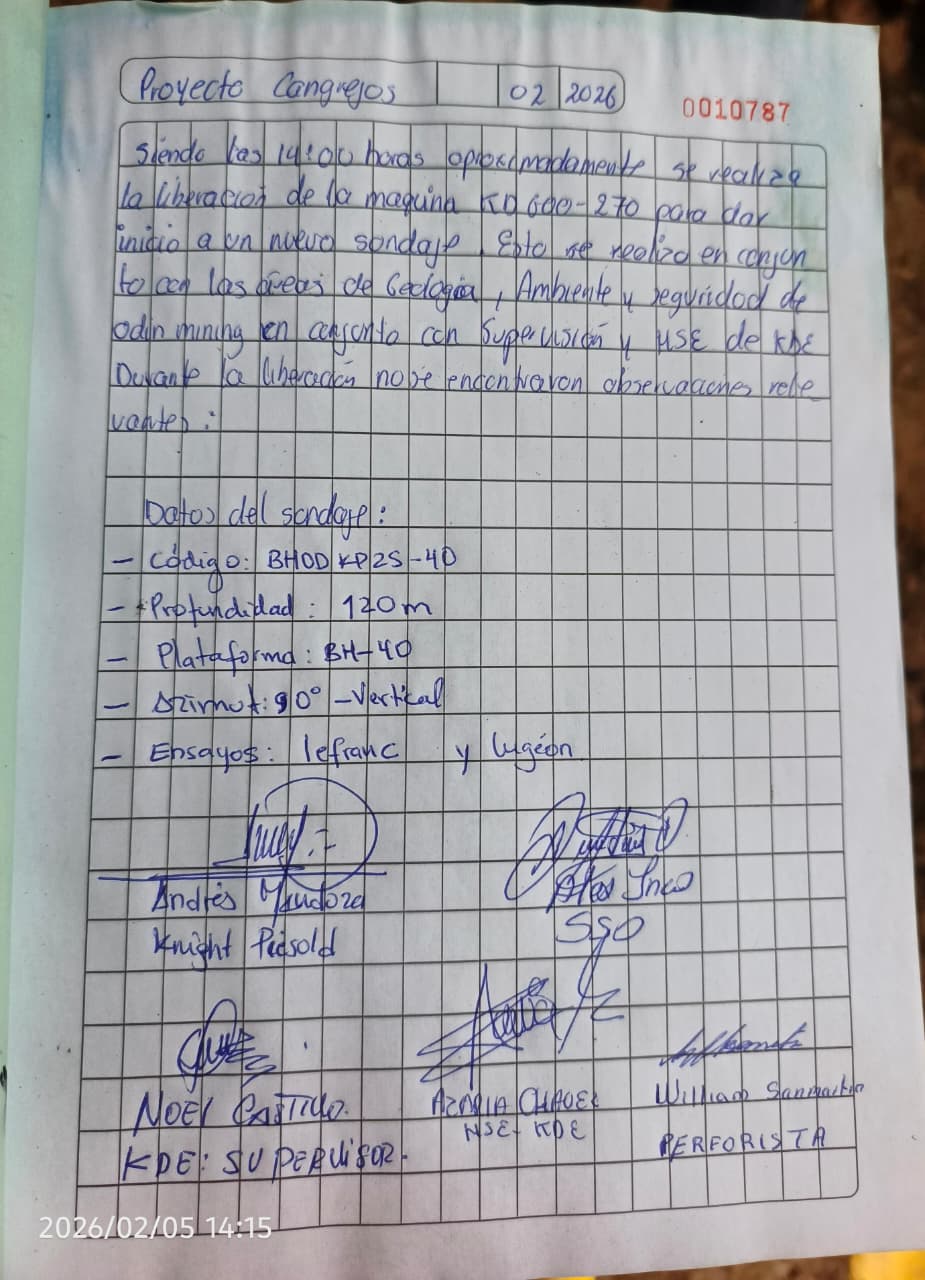 Proyecto Cangrejos 02 2026
0010787
Siendo las 14:00 horas aproximadamente se realiza
la liberación de la maquina KD 600-270 para dar
inicio a un nuevo sondaje. Esto se realizo en conjun
to con las áreas de Geología, Ambiente y seguridad de
odin mining en conjunto con Supervisión y HSE de KDE
Durante la liberación no se encontraron observaciones rele
vantes:
Datos del sondaje:
- Código: BHODKP25-40
- Profundidad: 120m
- Plataforma: BH-40
- Azimut: 90° - Vertical
- Ensayos: lefranc y lugeón
Andrés Mendoza
Knight Piésold
SSO
NOEL CASTILLO.
KDE: SUPERVISOR.
AZARIA CHAVEZ
HSE- KDE
William Sanmartin
PERFORISTA
2026/02/05 14:15